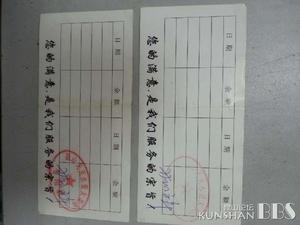 日期
金额
日期
金额
您的满意，是我们服务的宗旨！
日期
金额
日期
金额
您的满意，是我们服务的宗旨！
昆山论坛
KUNSHAN BBS